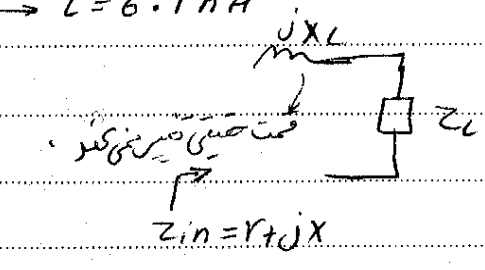 → L = 6.1 nH
jXL
قسمت حقیقی تغییر نمی کند .
ZL
Zin = r+jX